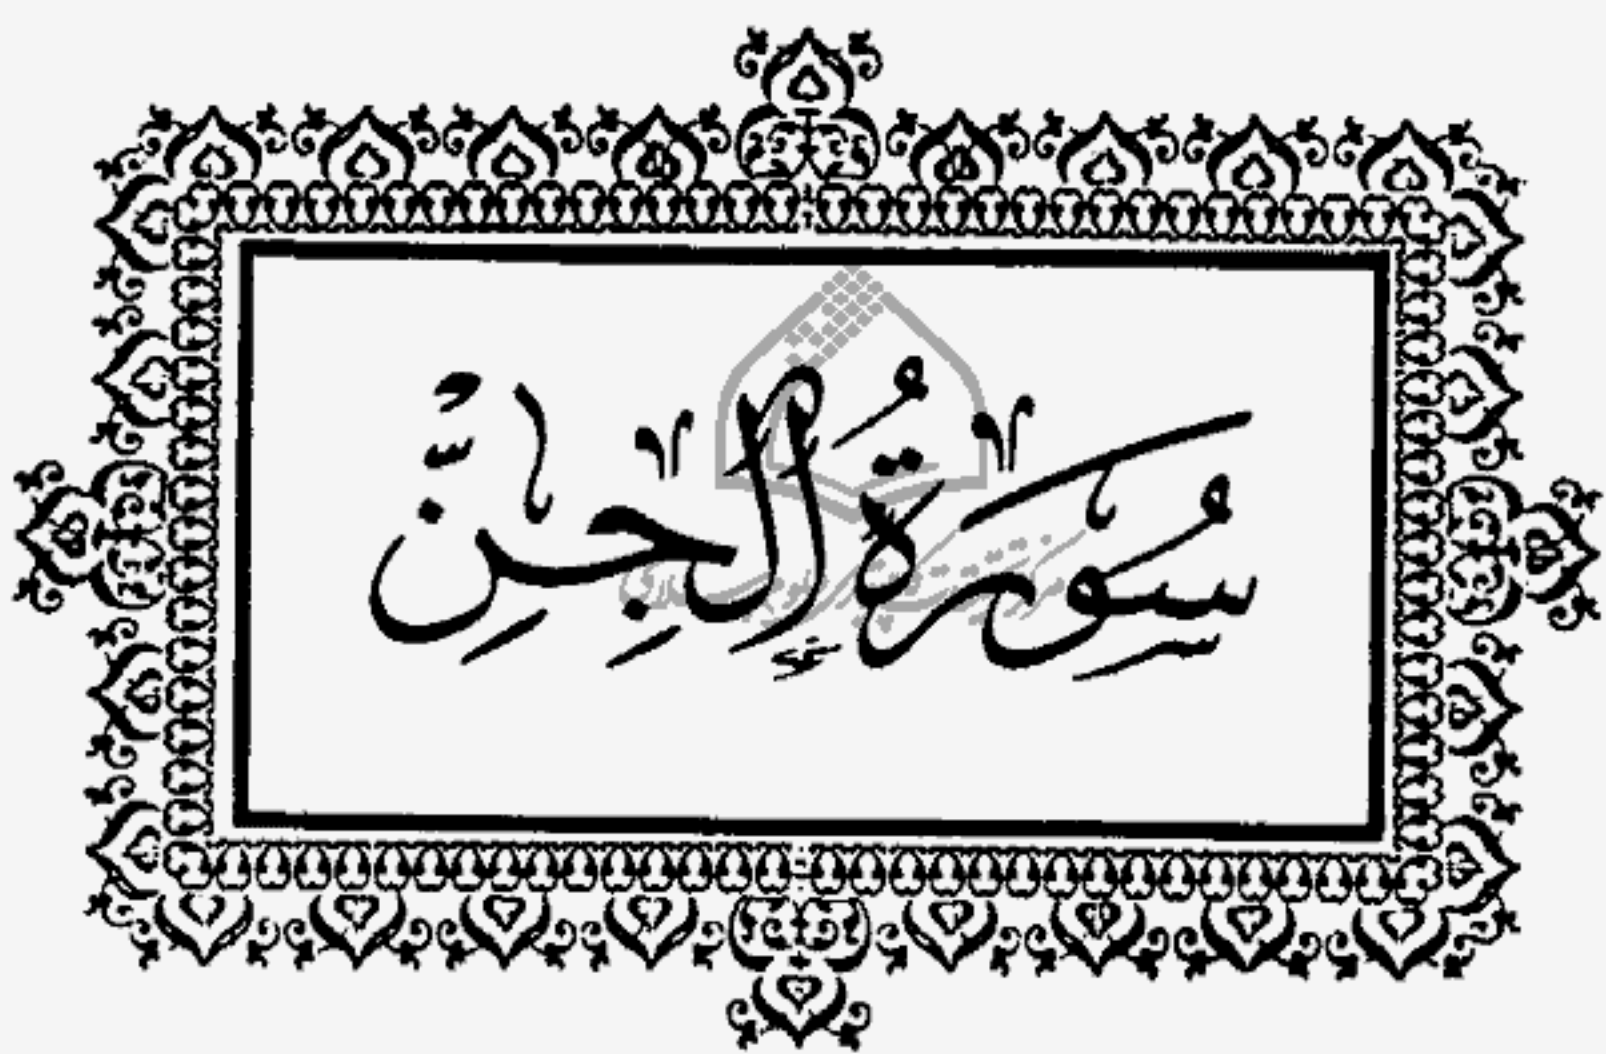 سُورَةُ الجِنِّ